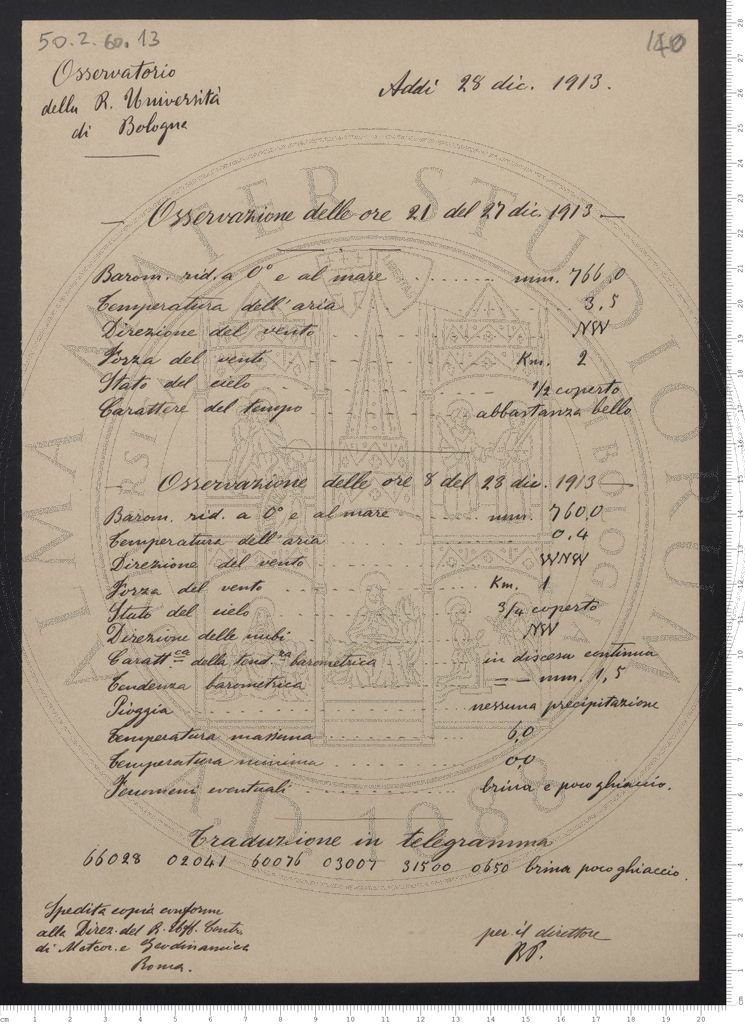 50.2.60.13
140
Osservatorio
della R. Università
di Bologna
Addì 28 dic. 1913.
— Osservazione delle ore 21 del 27 dic. 1913 —
Barom. rid. a 0° e al mare . . . . . . . mm. 766,0
Temperatura dell'aria 3,5
Direzione del vento NW
Forza del vento Km. 2
Stato del cielo 1/2 coperto
Carattere del tempo abbastanza bello
— Osservazione delle ore 8 del 28 dic. 1913 —
Barom. rid. a 0° e al mare mm. 760,0
Temperatura dell'aria 0,4
Direzione del vento WNW
Forza del vento Km. 1
Stato del cielo 3/4 coperto
Direzione delle nubi NW
Caratt.ca della tend.za barometrica in discesa continua
Tendenza barometrica = – mm. 1,5
Pioggia nessuna precipitazione
Temperatura massima 6,0
Temperatura minima 0,0
Fenomeni eventuali brina e poco ghiaccio.
Traduzione in telegramma
66028 02041 60076 03007 31500 0650 brina poco ghiaccio.
Spedita copia conforme
alla Direz. del R. Uff. Centr.
di Meteor. e Geodinamica
Roma.
per il direttore
ALMA MATER STUDIORUM
BOLOGNA
LIBERTAS
A.D. 1088